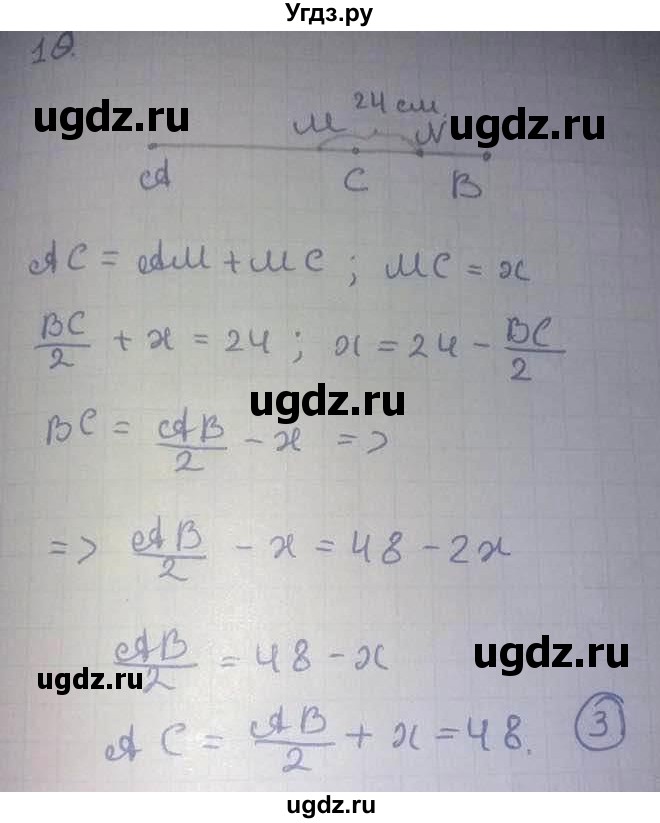 Угдз.ру
10.
ugdz.ru ugdz.ru
M 24 см N
A C B
AC = AM + MC ; MC = x
BC/2 + x = 24 ; x = 24 - BC/2
ugdz.ru
BC = AB/2 - x =>
=> AB/2 - x = 48 - 2x
AB/2 = 48 - x
ugdz.ru ugdz.ru
AC = AB/2 + x = 48. 3
ugdz.ru